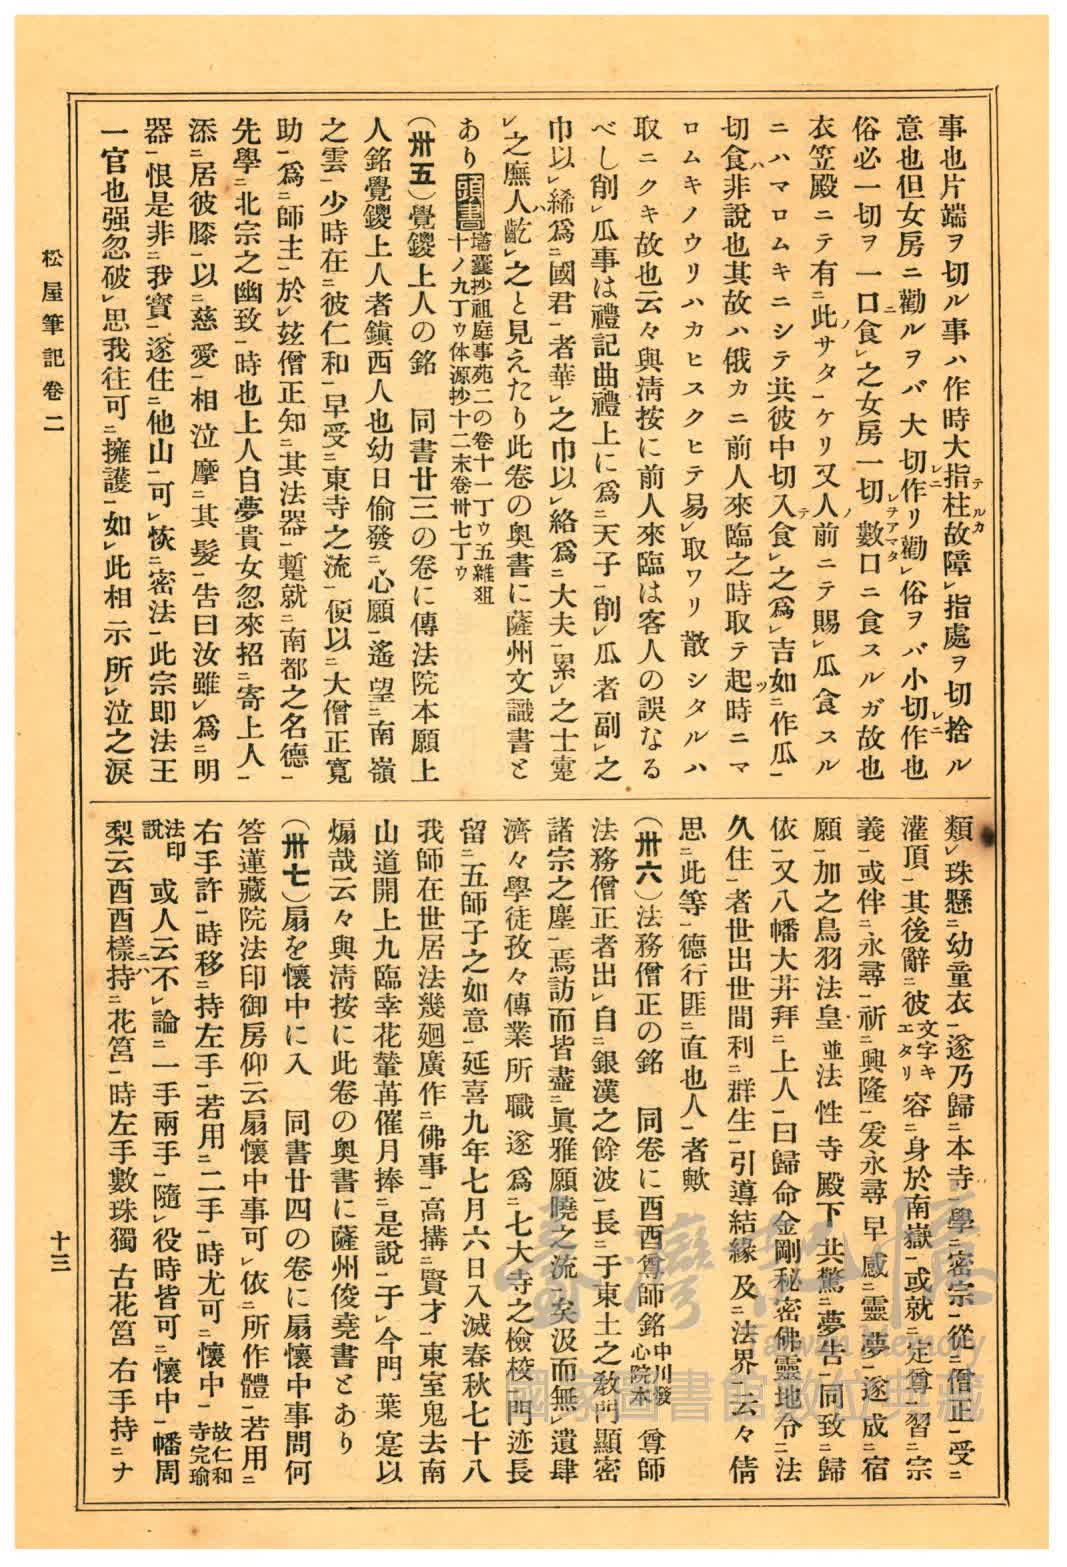 事也片端ヲ切ル事ハ作時大指柱故障レ指處ヲ切捨ル
意也但女房ニ勸ルヲバ大切作リ勸レ俗ヲバ小切作也
俗必一切ヲ一口食レ之女房一切數口ニ食スルガ故也
衣笠殿ニテ有ニ此サタ一ケリ又人前ニテ賜レ瓜食スル
ニハマロムキニシテ共彼中切入食レ之爲レ吉如ニ作瓜一
切食非說也其故ハ俄カニ前人來臨之時取テ起時ニマ
ロムキノウリハカヒスクヒテ易レ取ワリ散シタルハ
取ニクキ故也云々與淸按に前人來臨は客人の誤なる
べし削レ瓜事は禮記曲禮上に爲ニ天子一削レ瓜者副レ之
巾以レ絺爲ニ國君一者華レ之巾以レ絡爲ニ大夫一累レ之士疐
レ之庶人齕レ之と見えたり此卷の奧書に薩州文識書と
あり頭書壒囊抄祖庭事苑二の卷十一丁ウ五雜爼
十ノ九丁ウ体源抄十二末卷卅七丁ウ
(卅五)覺鑁上人の銘　同書廿三の卷に傳法院本願上
人銘覺鑁上人者鎭西人也幼日偷發ニ心願一遙望ニ南嶺
之雲一少時在ニ彼仁和一早受ニ東寺之流一便以ニ大僧正寬
助一爲ニ師主一於レ玆僧正知ニ其法器一蹔就ニ南都之名德一
先學ニ北宗之幽致一時也上人自夢貴女忽來招ニ寄上人一
添ニ居彼膝一以ニ慈愛一相泣摩ニ其髮一告曰汝雖レ爲ニ明
器一恨是非ニ我寳一遂住ニ他山一可レ恢ニ密法一此宗即法王
一官也强忽破レ思我往可ニ擁護一如レ此相示所レ泣之淚
類レ珠懸ニ幼童衣一遂乃歸ニ本寺一學ニ密宗一從ニ僧正一受ニ
灌頂一其後辭ニ彼文字キエタリ容ニ身於南嶽一或就ニ定尊一習ニ宗
義一或伴ニ永尋一祈ニ興隆一爰永尋早感ニ靈夢一遂成ニ宿
願一加之鳥羽法皇並法性寺殿下共驚ニ夢告一同致ニ歸
依一又八幡大井拜ニ上人一曰歸命金剛秘密佛靈地今ニ法
久住一者世出世間利ニ群生一引導結緣及ニ法界一云々倩
思ニ此等一德行匪ニ直也人一者歟
(卅六)法務僧正の銘　同卷に西酉尊師銘中川發心院本尊師
法務僧正者出レ自ニ銀漢之餘波一長ニ于東土之敎門顯密
諸宗之塵一焉訪而皆盡ニ眞雅願曉之流一矣汲而無レ遺肆
濟々學徒孜々傳業所職遂爲ニ七大寺之檢校一門迹長
留ニ五師子之如意一延喜九年七月六日入滅春秋七十八
我師在世居法幾廻廣作ニ佛事一高搆ニ賢才一東室鬼去南
山道開上九臨幸花輦苒催月捧ニ是說一于レ今門葉寔以
煽哉云々與淸按に此卷の奧書に薩州俊堯書とあり
(卅七)扇を懷中に入　同書廿四の卷に扇懷中事問何
答蓮藏院法印御房仰云扇懷中事可レ依ニ所作體一若用ニ
右手許一時移ニ持左手一若用ニ二手一時尤可ニ懷中一故仁和寺完瑜
法印說　或人云不レ論ニ一手兩手一隨レ役時皆可ニ懷中一幡周
梨云酉酉樣持ニ花筥一時左手數珠獨古花筥右手持ニナ
松屋筆記卷二
十三
臺灣記憶
Taiwan Memory
國家圖書館數位典藏